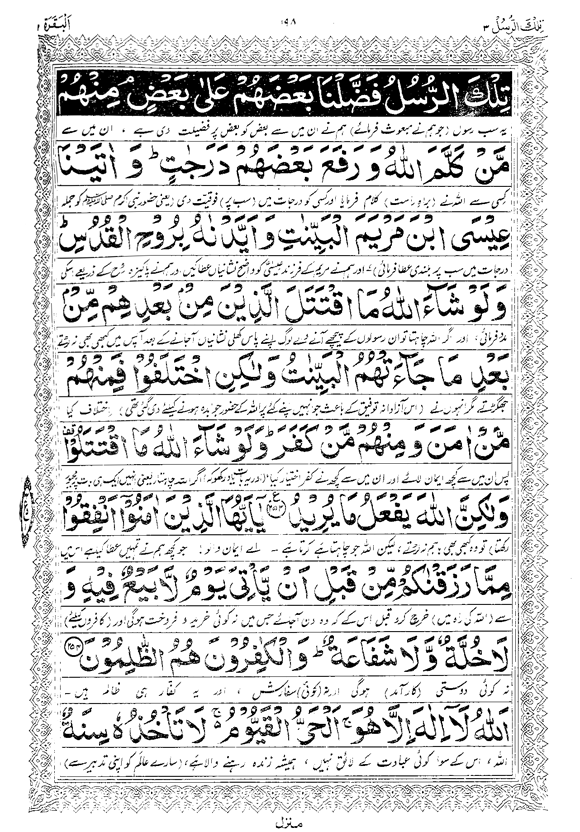 تِلْكَ الرُّسُلُ ٣
٩٨
اَلْبَقَرَة
تِلْكَ الرُّسُلُ فَضَّلْنَا بَعْضَهُمْ عَلٰى بَعْضٍ مِنْهُمْ
یہ سب رسول (جو ہم نے مبعوث فرمائے) ہم نے ان میں سے بعض کو بعض پر فضیلت دی ہے، ان میں سے
مَّنْ كَلَّمَ اللّٰهُ وَ رَفَعَ بَعْضَهُمْ دَرَجٰتٍ ؕ وَ اٰتَيْنَا
کسی سے اللہ نے (براہِ راست) کلام فرمایا اور کسی کو درجات میں (سب پر) فوقیت دی (یعنی حضور نبی اکرم ﷺ کو جملہ
عِيْسَى ابْنَ مَرْيَمَ الْبَيِّنٰتِ وَ اَيَّدْنٰهُ بِرُوْحِ الْقُدُسِ ؕ
درجات میں سب پر بلندی عطا فرمائی)، اور ہم نے مریم کے فرزند عیسیٰ کو واضح نشانیاں عطا کیں اور ہم نے پاکیزہ روح کے ذریعے اسکی
وَ لَوْ شَآءَ اللّٰهُ مَا اقْتَتَلَ الَّذِيْنَ مِنْۢ بَعْدِهِمْ مِّنْۢ
مدد فرمائی، اور اگر اللہ چاہتا تو ان رسولوں کے پیچھے آنے والے لوگ اپنے پاس کھلی نشانیاں آجانے کے بعد آپس میں کبھی بھی نہ لڑتے
بَعْدِ مَا جَآءَتْهُمُ الْبَيِّنٰتُ وَ لٰكِنِ اخْتَلَفُوْا فَمِنْهُمْ
جھگڑتے مگر انہوں نے (اس آزادانہ توفیق کے باعث جو انہیں اپنے کئے پر اللہ کے حضور جوابدہ ہونے کیلئے دی گئی تھی) اختلاف کیا
مَّنْ اٰمَنَ وَ مِنْهُمْ مَّنْ كَفَرَ ؕ وَ لَوْ شَآءَ اللّٰهُ مَا اقْتَتَلُوْا
پس ان میں سے کچھ ایمان لائے اور ان میں سے کچھ نے کفر اختیار کیا، اگر اللہ چاہتا
وَ لٰكِنَّ اللّٰهَ يَفْعَلُ مَا يُرِيْدُ ﴿٢٥٣﴾ يٰۤاَيُّهَا الَّذِيْنَ اٰمَنُوْۤا اَنْفِقُوْا
رکھتا) تو وہ کبھی بھی باہم نہ لڑتے، لیکن اللہ جو چاہتا ہے کرتا ہے۔ اے ایمان والو! جو کچھ ہم نے تمہیں عطا کیا ہے اس میں
مِمَّا رَزَقْنٰكُمْ مِّنْ قَبْلِ اَنْ يَّاْتِيَ يَوْمٌ لَّا بَيْعٌ فِيْهِ وَ
سے (اللہ کی راہ میں) خرچ کرو قبل اس کے کہ وہ دن آجائے جس میں نہ کوئی خرید و فروخت ہوگی اور (کافروں کیلئے)
لَا خُلَّةٌ وَّ لَا شَفَاعَةٌ ؕ وَ الْكٰفِرُوْنَ هُمُ الظّٰلِمُوْنَ ﴿٢٥٤﴾
نہ کوئی دوستی (کارآمد) ہوگی اور نہ (کوئی) سفارش، اور یہ کفار ہی ظالم ہیں۔
اَللّٰهُ لَاۤ اِلٰهَ اِلَّا هُوَ ۚ اَلْحَيُّ الْقَيُّوْمُ ۚ لَا تَاْخُذُهٗ سِنَةٌ
اللہ، اس کے سوا کوئی عبادت کے لائق نہیں، ہمیشہ زندہ رہنے والا ہے، (سارے عالم کو اپنی تدبیر سے)
منزل